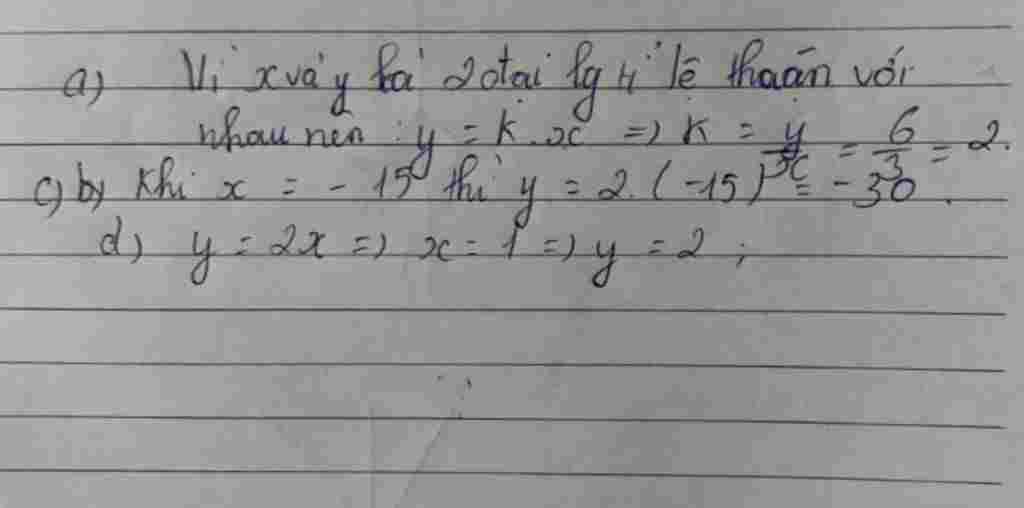 a) Vì x và y là 2 đại lg tỉ lệ thuận với
nhau nên : y = k . x => k = y/x = 6/3 = 2.
c) b) Khi x = - 15 thì y = 2. (-15) = - 30 .
d) y = 2x => x = 1 => y = 2 ;